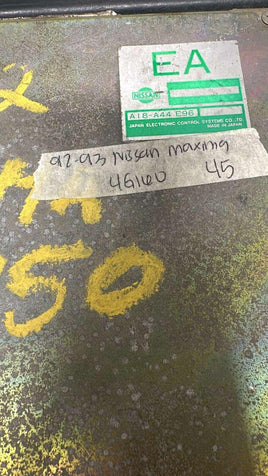 EA
NISSAN
A18-A44 E96
JAPAN ELECTRONIC CONTROL SYSTEMS CO.,LTD.
MADE IN JAPAN
2
92-93 Nissan maxima
46160 45
50